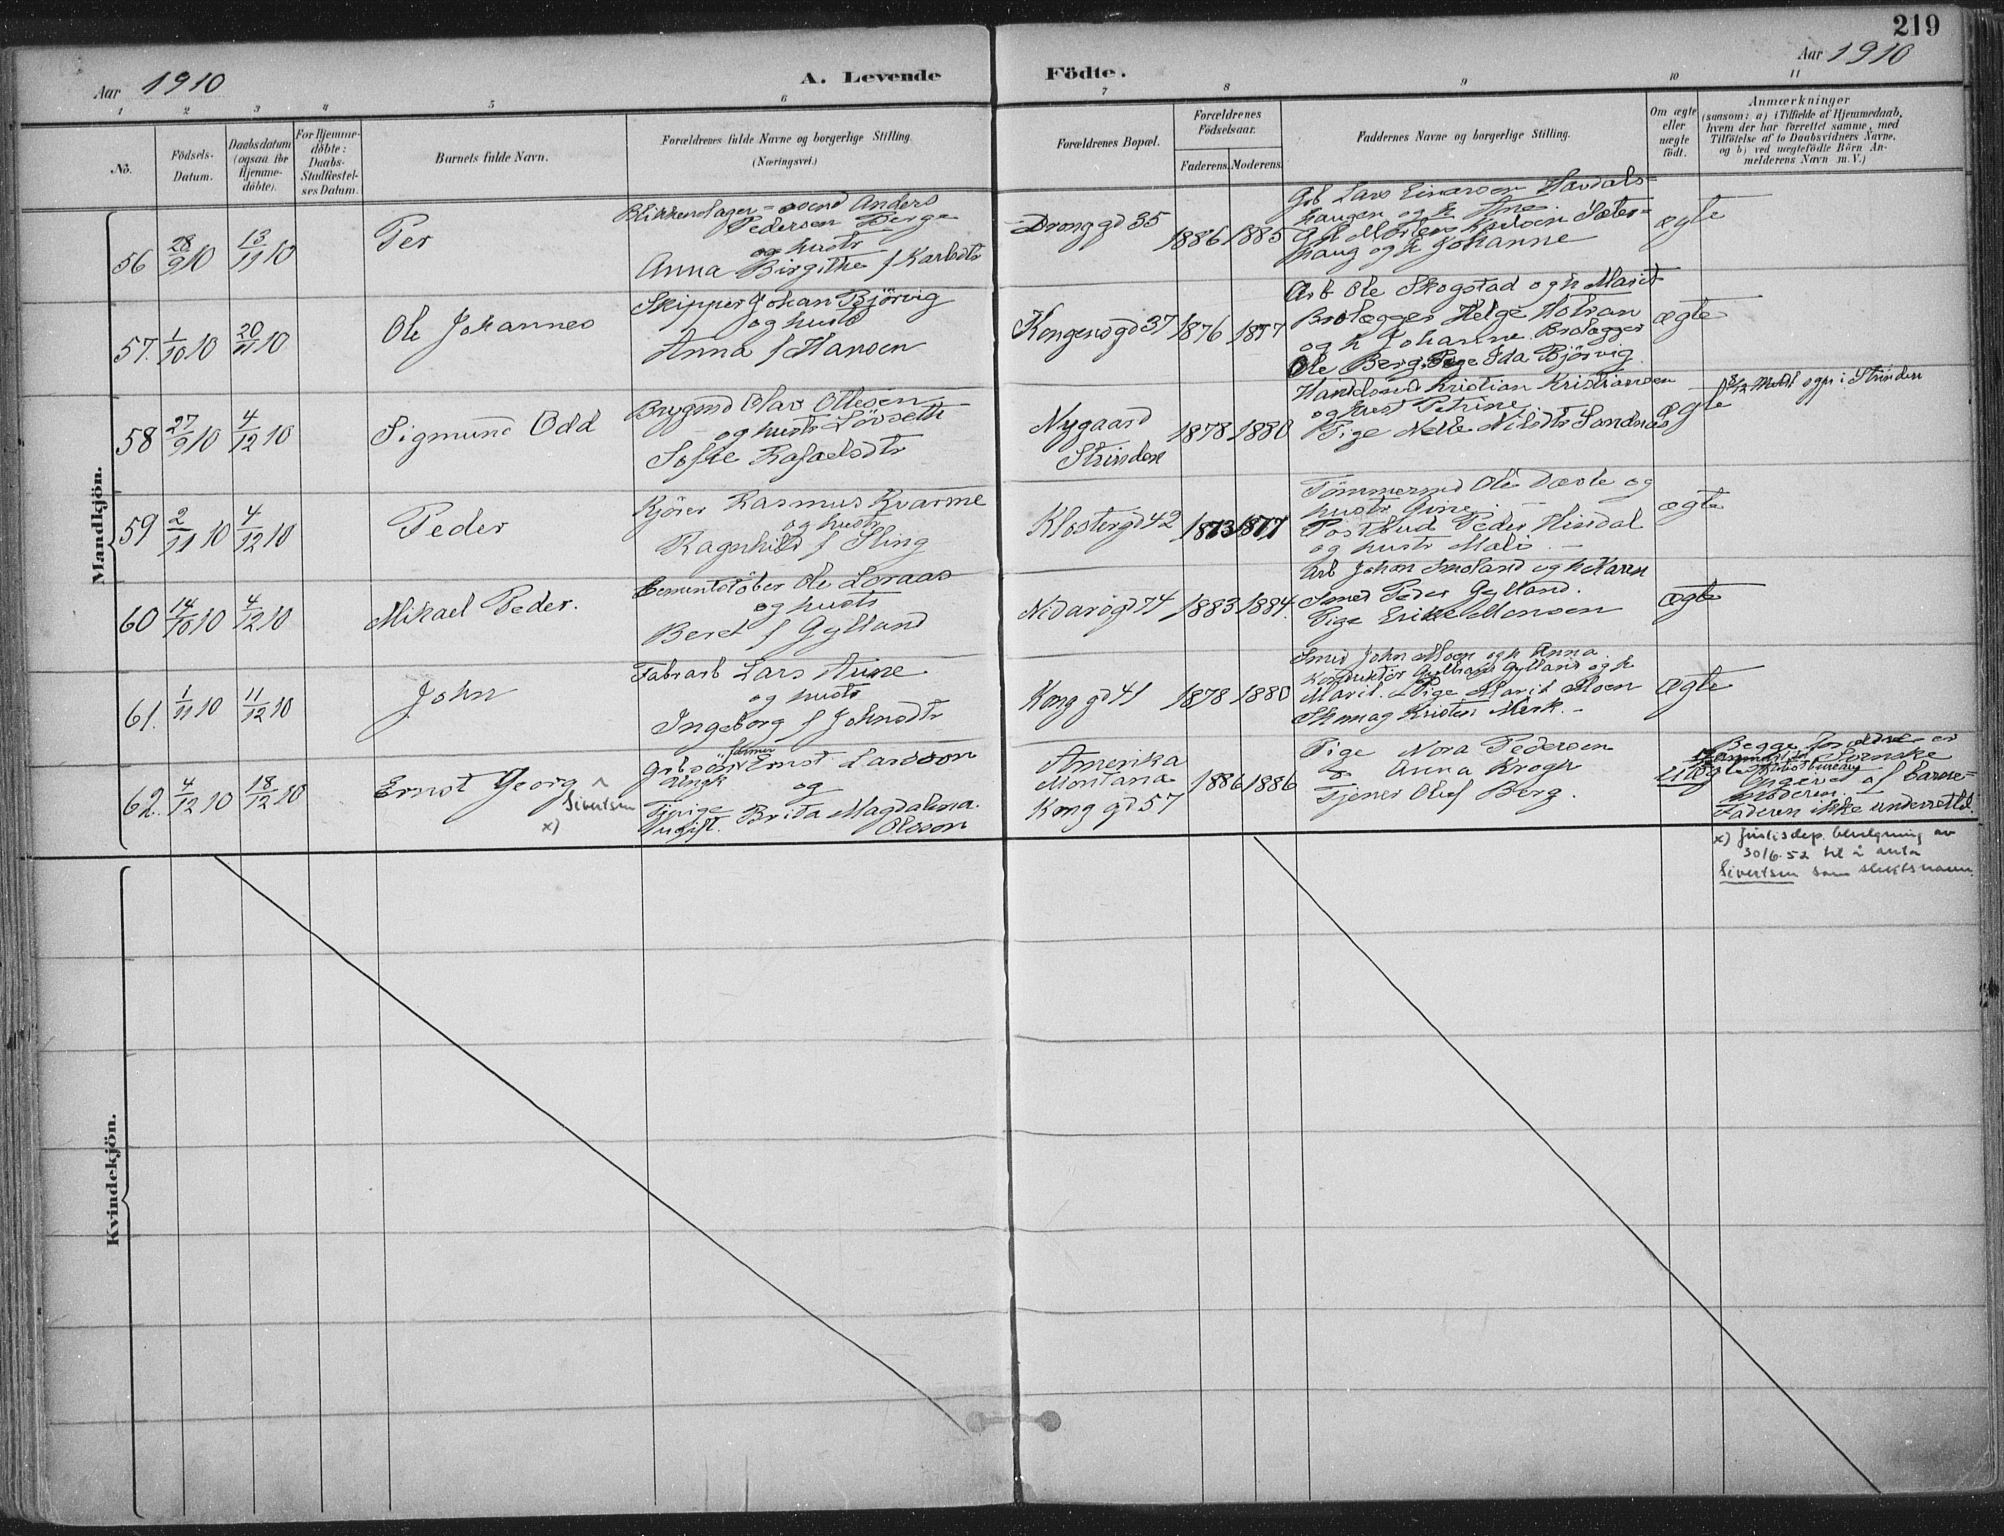 219
Aar 1910
A. Levende
Födte.
Aar 1910
1 2 3 4 5 6 7 8 9 10 11
No.
Födsels-
Datum.
Daabsdatum
(ogsaa for
Hjemme-
döbte).
For Hjemme-
döbte:
Daabs-
Stadfæstel-
ses Datum.
Barnets fulde Navn.
Forældrenes fulde Navne og borgerlige Stilling.
(Næringsvei.)
Forældrenes Bopæl.
Forældrenes
Födselsaar.
Faderens.
Moderens.
Faddernes Navne og borgerlige Stilling.
Om ægte
eller
uægte
födt.
Anmærkninger
(saasom: a) i Tilfælde af Hjemmedaab,
hvem der har forrettet samme, med
Tilföielse af to Daabsvidners Navne,
og b) ved uægtefödte Börn An-
melderens Navn m. V.)
Mandkjön.
56 28/9 10 13/11 10
Per
Blikkenslager-svend Anders
Pedersen Berge
og hustr
Anna Birgithe f Karlsdtr
Drong gd 35
1886 1885
Gb Lars Einarsen Havdals-
haugen og h Ane.
Morten Karlsen Sæter-
haug og h Johanne
ægte
57. 1/10 10 20/11 10
Ole Johannes
Skipper Johan Björvig
og hustr
Anna f Hansen
Kongensgd 37
1876 1877
Arb Ole Skogstad og h Marit
Brolægger Helge Hotran
og h Johanne Brolægger
Ole Berg. Pige Ida Björvig
ægte
58 27/9 10 4/12 10
Sigmund Odd
Brygmd Olav Ottesen
og hustr Lövseth
Sofie Rafaelsdtr
Nygaard
Strinden
1878 1880
Handelsmd Kristian Kristiansen
og hust Petrine
Pige Nelle Nilsdtr Sandnes
ægte
8/12 Medt ogs i Strinden
59 2/11 10 4/12 10
Peder
Kjörer Rasmus Kvarme
og hustr
Ragnhild f Sting
Klostergd 42
1873 1877
Tömmermd Ole Dæsle og
hustr Gine. —
Postbud Peder Hindal
og hustr Mali. —
ægte
60 14/10 10 4/12 10
Mikael Peder.
Cementstöber Ole Loraas
og hustr
Beret f Gylland
Nidarögd 74
1883 1884.
Arb Johan Smoland og h Karen
Smed Peder Gylland.
Pige Erikke Monsen
ægte
61. 1/11 10 11/12 10
John
Fabrarb Lars Aune
og hustr
Ingeborg f Johnsdtr
Kong gd 41
1878 1880
Smed John Moen og h Anna.
Konduktör Gylland og h
Marit. Pige Marit Moen
Skomag Kristen Merk. —
ægte
62. 4/12 10 18/12 10
Ernst Georg ^
Sivertsen
x)
farmer
Ernst Larsson
Ungk og
Tjenige
Ugift. Brita Magdalena
Olsson
Amerika
Montana
Kong gd 57
1886 1886
Pige Nora Pedersen
" Anna Krogh
Tjener Oluf Berg.
uægte
Begge forældre er
Svenske
Opgivet af Barne-
moderen.
Faderen ikke underrettet.
x) Justisdep. bevilgning av
30/6-52 til å anta
Sivertsen som slektsnavn.
Kvindekjön.